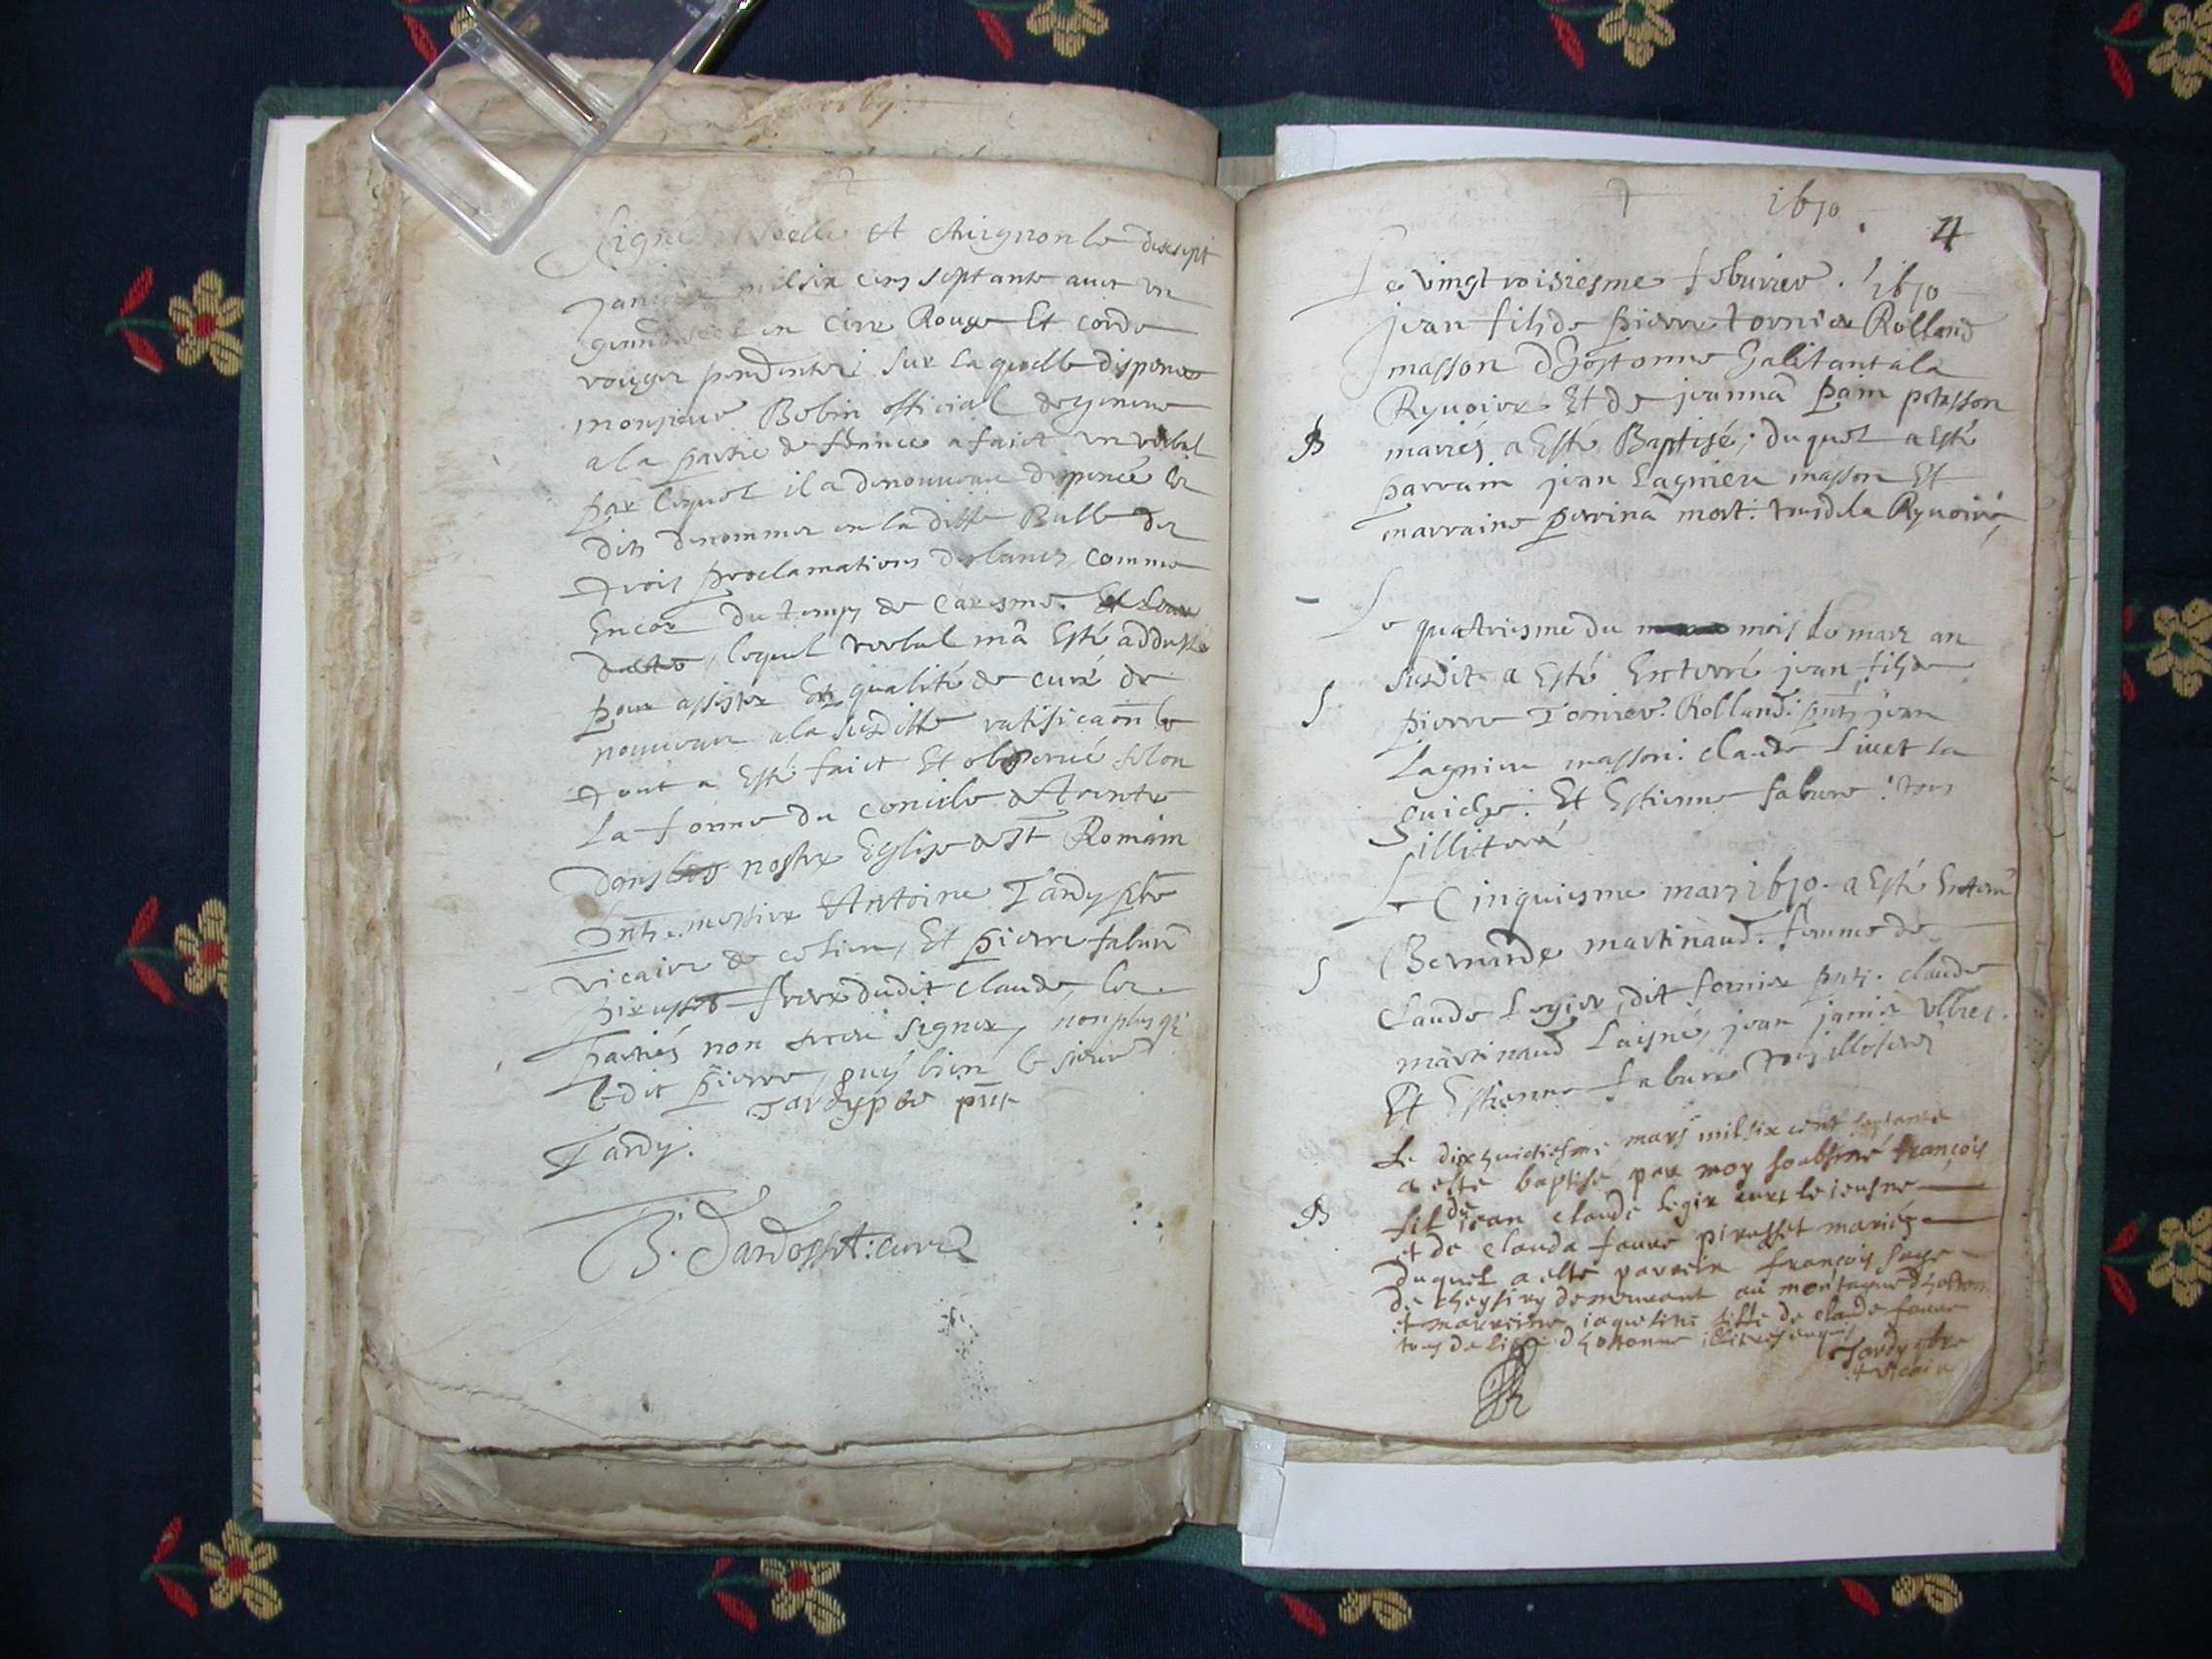 signé seellé et Avignon le dixsept
Janvier mil six cens septante avec un
seel en cire Rouge Et corde
rouge pendente; sur laquelle dispence
monsieur Bobin official de
a la partie de a faict un verbal
par lequel il a denouveau dispencé les
dits denommez en la ditte Bulle des
trois proclamations de bancs comme
Encor du temps de Caresme. Et leur
lequel verbal m'a Esté addressé
pour assister En qualité de curé de
nouveau a la susditte ratificaõn le
tout a Esté faict Et observé selon
La forme du concile de trente
Dans nostre Eglise de st Romain
pnts messire Antoine Tardy pbre
vicaire de Et pierre fabure
pirasset frere dudit claude, les
parties non sceu signer, non plus q;
ledit pierre, ouy bien le sieur
Tardy. Tardy pbre pnt
B. Dardosset: curé
1670
4
Le vingt roisiesme feburier. 1670
jean fils de pierre tornier Rolland
masson d'hostonne habitant a la
Ryvoire Et de jeanna pain potasson
B mariés a Esté Baptisé; duquel a Esté
parrain jean Lagnieu masson Et
marraine perrina mort: tous de la Ryvoire
Le quatriesme du mois de mars an
susdit a Esté Enterré jean fils de
S pierre Tornier Rolland: pnts jean
Lagnieu masson: claude Livet la
guiche: Et Estienne fabure: tous
illiteré
Le Cinquiesme mars 1670. a Esté Enterré
Bernarde martinaud. femme de
S Claude Legier, dit fornier pnts. claude
martinaud Laisné, jean janin
Et Estienne fabure tous illiterés
Le dixhuictiesme mars mil six cent septante
a esté baptisé par moy soubsiné françois
B fils de jean claude legier le jeusne
et de clauda faure pirasset mariés
duquel a esté parrein françois
de demeurant au montagne d'hoston
et marreine jaqueline fille de claude faure
tous de d'hostonne
Tardy pbre
et vicaire